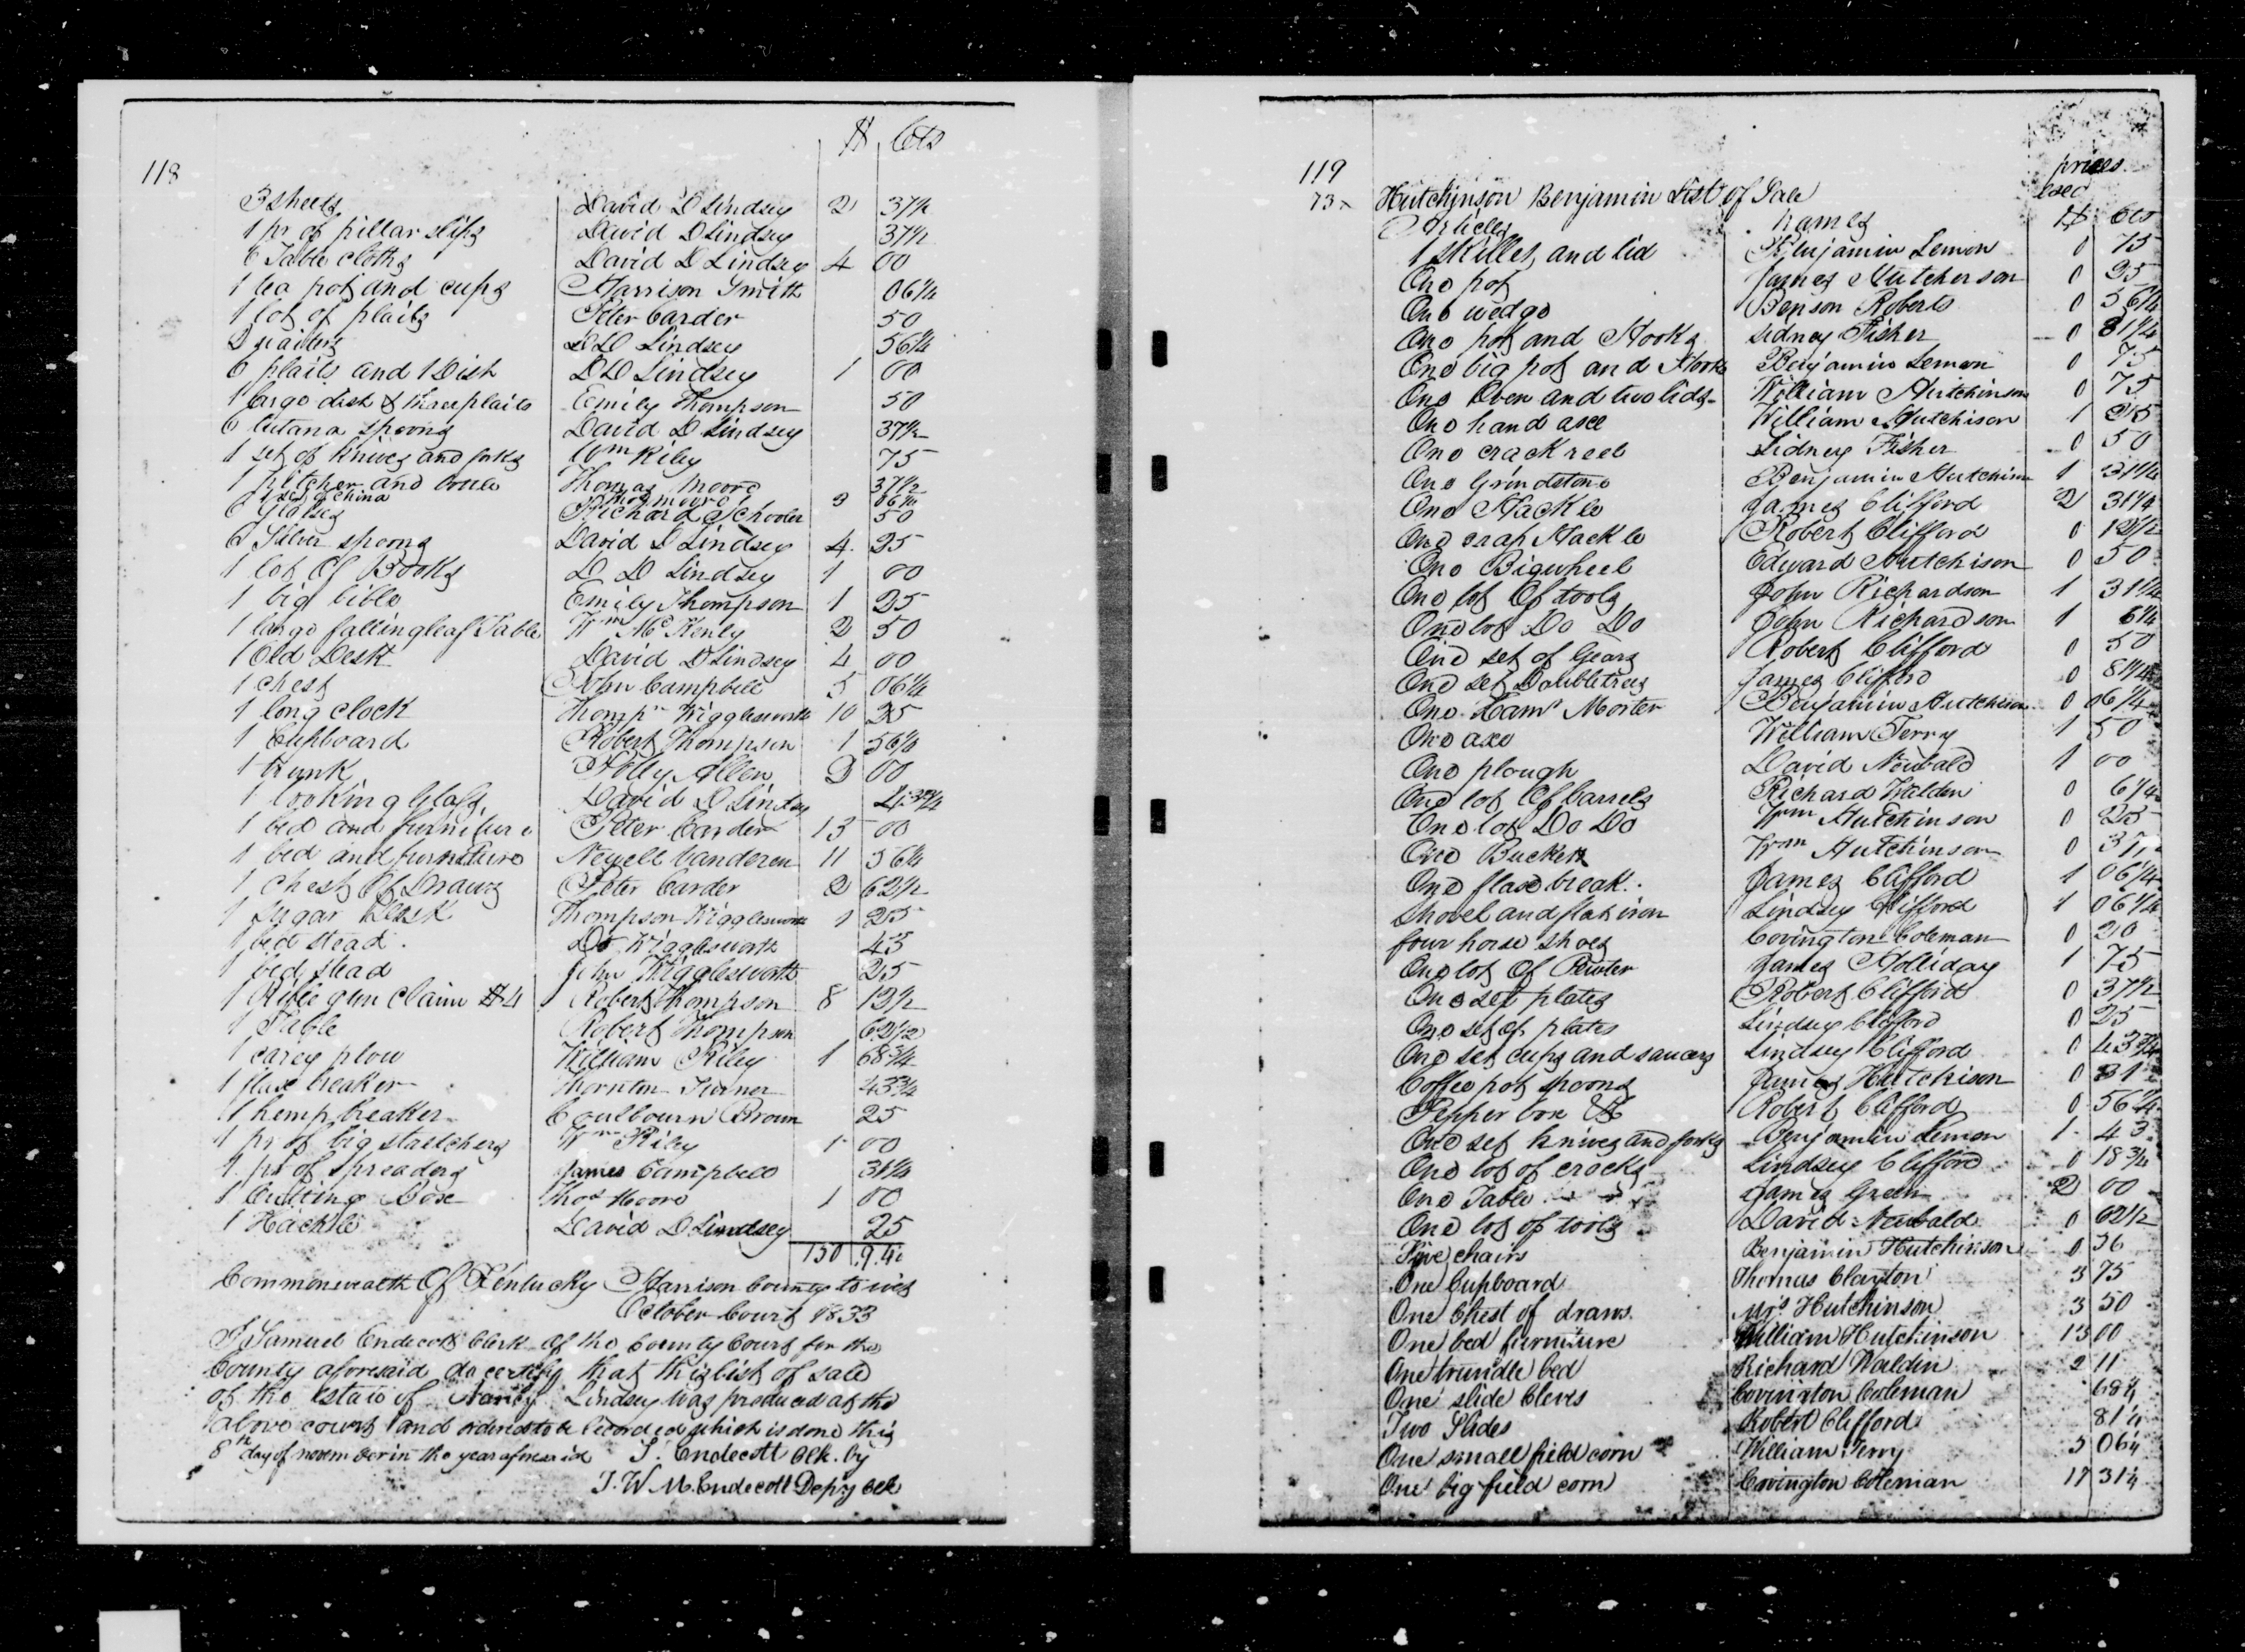 $ Cts
118
3 sheets David D Lindsey 2 37½
1 pr of pillar slips David D Lindsey 37½
6 Table cloths David D Lindsey 4 00
1 tea pot and cups Harrison Smith 06¼
1 lot of plaits Peter Carder 50
D D Lindsey 56¼
6 plaits and 1 Dish D D Lindsey 1 00
1 large dish & three plaits Emily Thompson 50
6 Cutana spoons David D Lindsey 37½
1 set of knives and forks Wm Riley 75
1 pitcher and Thomas Moore 37½
1 set of china Thos moore 3 06¼
6 Glases Richard Schooler 50
6 Silver spoons David D Lindsey 4 25
1 lot Of Books D D Lindsey 1 00
1 big bible Emily Thompson 1 25
1 large fallingleaf Table Wm McKenly 2 50
1 Old Desk David D Lindsey 4 00
1 chest John Campbell 5 06¼
1 long clock Thompn Wigglesworth 10 25
1 Cupboard Robert Thompson 1 56¼
1 trunk Polly Allen 00
1 looking Glass David D Lindsey
1 bed and furniture Peter Carder 13 00
1 bed and furniture Newell Vanderen 11 56¼
1 Chest Of Draws Peter Carder 2 62½
1 Sugar Desk Thompson Wigglesworth 1 25
1 bed stead Do Wigglesworth 43
1 bed stead John Wigglesworth 25
1 Rifle gun claim $4 Robert Thompson 8 12½
1 Table Robert Thompson 62½
1 carey plow William Riley 1 68¾
1 flax breaker Thornton Turner 43¾
1 hemp breaker Coulbourn Brown 25
1 pr of big stretchers Wm Riley 1 00
1 pr of Spreaders James Campbell 31¼
1 Cutting Box Thos Moore 1 00
1 Hackle David D Lindsey 25
150 9.4
Commonwealth Of Kentucky Harrison County to wit
October Court 1833
I Samuel Endecott Clerk of the County Court for the
County aforesaid do certify that this list of sale
of the estate of Nancy Lindsey was produced at the
above court and ordered to be Recorded which is done this
8th day of november in the year aforesaid S. Endecott Clk. by
J. W. M. Endecott Depty Clk
119 prices
73 Hutchinson Benjamin List of Sale
Articles names $ cts
1 skillet and lid Benjamin Lemon 0 75
One pot James Hutcherson 0 25
One wedge Benson Roberts 0 56¼
One pot and Hooks Sidney Fisher 0 81¼
One big pot and Hooks Benjamin Lemon 0 75
One Oven and two lids William Hutchinson 0 75
One hand axe William Hutchison 1 25
One crack reel Sidney Fisher 0 50
One Grindstone Benjamin Hutchison 1 31¼
One Hackle James Clifford 2 31¼
One Hackle Robert Clifford 0 12½
One Bigwheel Edward Hutchison 0 50
One lot Of tools John Richardson 1 31¼
One lot Do Do John Richardson 1 6¼
One set of Gears Robert Clifford 0 50
One set Doubletrees James Clifford 0 81¼
One Morter Benjamin Hutchison 0 06¼
One axe William Terry 1 50
One plough David Newbald 1 00
One lot Of barrels Richard Walden 0 6¼
One lot Do Do Wm Hutchinson 0 25
One Bucket Wm Hutchinson 0
One flax break James Clifford 1 06¼
Shovel and flat iron Lindsey Clifford 1 06¼
four horse shoes Covington Coleman 0 20
One lot Of Pewter James Holliday 1 75
One set plates Robert Clifford 0 37½
One set of plates Lindsey Clifford 0 25
One set cups and saucers Lindsey Clifford 0 43¾
Coffee pot spoons James Hutchison 0 31
Pepper box & Robert Clifford 0 56¼
One set knives and forks Benjamin Lemon 1 43
One lot of crocks Lindsey Clifford 0 18¾
One Table James Green 2 00
One lot of tools David Newbald 0 62½
Five chairs Benjamin Hutchinson 0 56
One Cupboard Thomas Clayton 3 75
One Chest of draws Mrs Hutchinson 3 50
One bed furniture William Hutchinson 13 00
One trundle bed Richard Waldin 2 11
One slide Cleves Covington Coleman 68¾
Two Slides Robert Clifford 81¼
One small field corn William Terry 5 06¼
One big field corn Covington Coleman 17 31¼